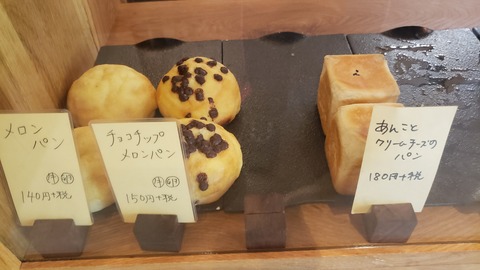 メロン
パン
140円+税
チョコチップ
メロンパン
150円+税
あんこと
クリームチーズの
パン
180円+税